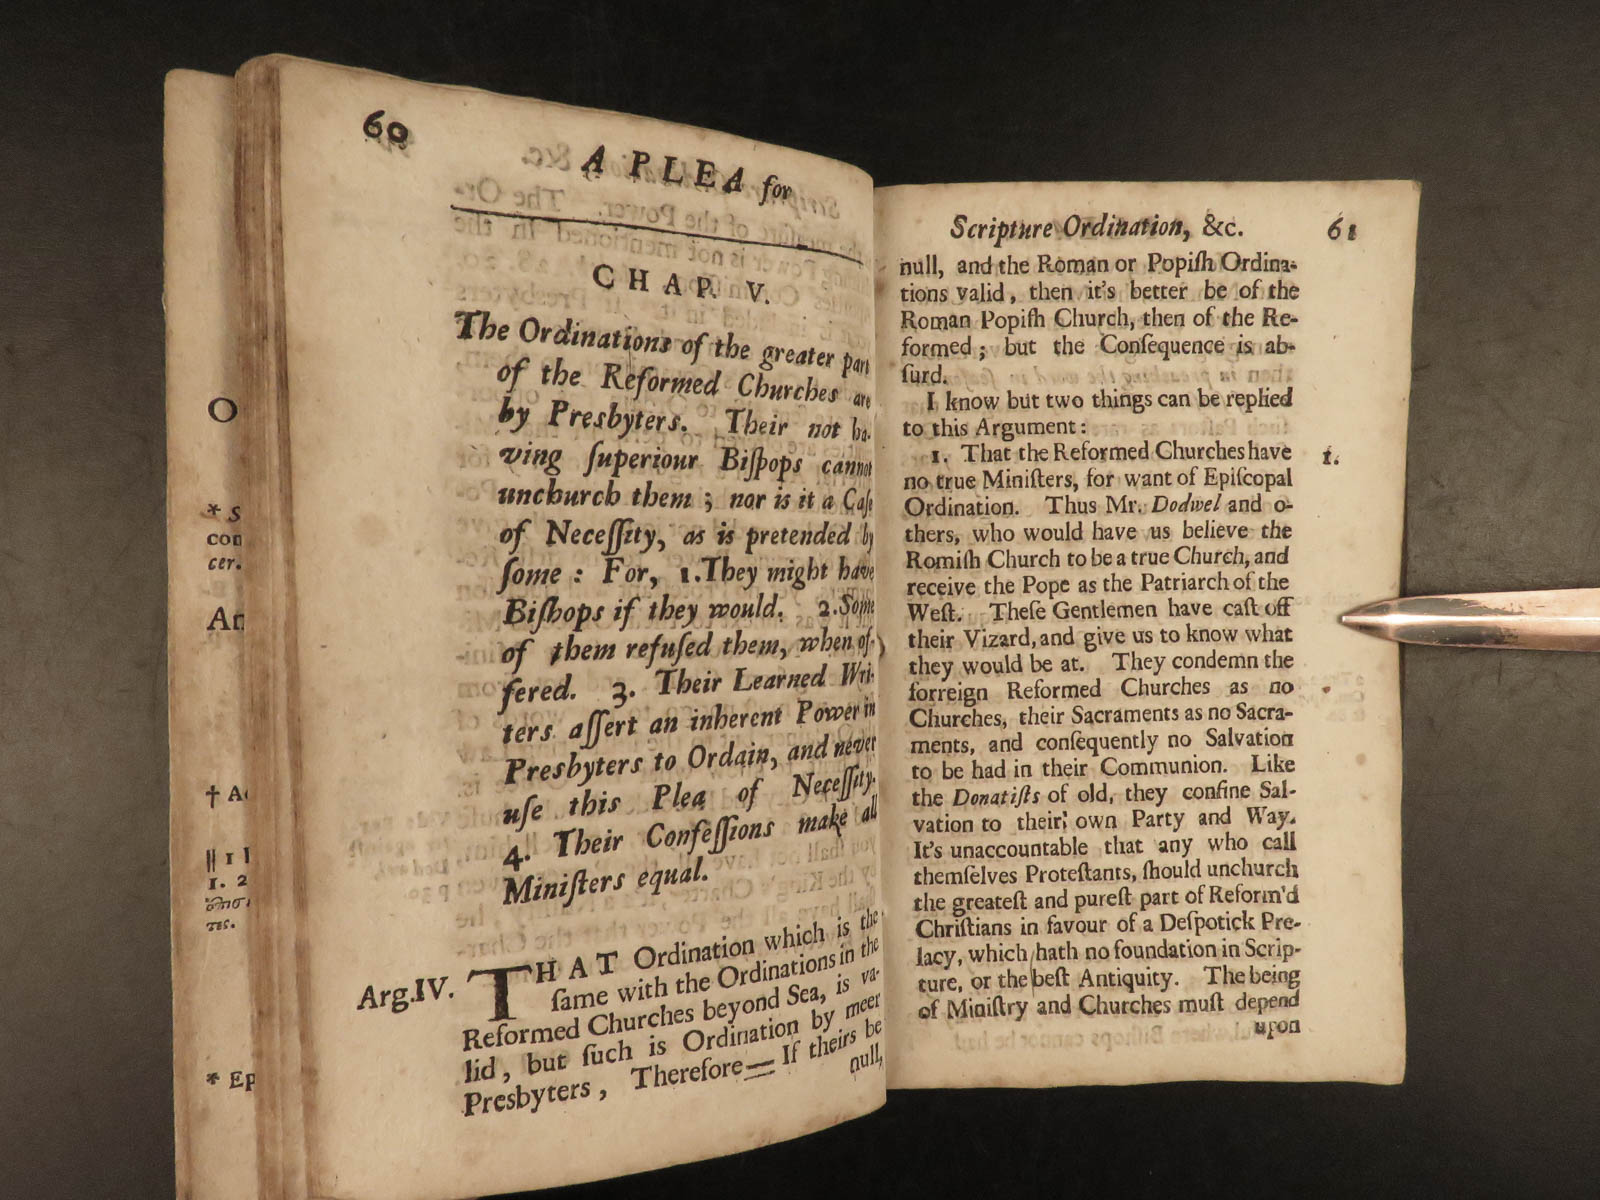 60
A PLEA for
CHAP. V.
The Ordinations of the greater part
of the Reformed Churches are
by Presbyters. Their not ha-
ving ſuperiour Biſhops cannot
unchurch them ; nor is it a Caſe
of Neceſſity, as is pretended by
ſome : For, 1. They might have
Biſhops if they would. 2. Some
of them refuſed them, when of-
fered. 3. Their Learned Wri-
ters aſſert an inherent Power in
Presbyters to Ordain, and never
uſe this Plea of Neceſſity.
4. Their Confeſſions make all
Miniſters equal.
Arg.IV. THAT Ordination which is the
ſame with the Ordinations in the
Reformed Churches beyond Sea, is va-
lid, but ſuch is Ordination by meer
Presbyters, Therefore— If theirs be
null,
Scripture Ordination, &c. 61
null, and the Roman or Popiſh Ordina-
tions valid, then it's better be of the
Roman Popiſh Church, then of the Re-
formed ; but the Conſequence is ab-
ſurd.
I know but two things can be replied
to this Argument :
1. That the Reformed Churches have 1.
no true Miniſters, for want of Epiſcopal
Ordination. Thus Mr. Dodwel and o-
thers, who would have us believe the
Romiſh Church to be a true Church, and
receive the Pope as the Patriarch of the
Weſt. Theſe Gentlemen have caſt off
their Vizard, and give us to know what
they would be at. They condemn the
forreign Reformed Churches as no
Churches, their Sacraments as no Sacra-
ments, and conſequently no Salvation
to be had in their Communion. Like
the Donatiſts of old, they confine Sal-
vation to their own Party and Way.
It's unaccountable that any who call
themſelves Proteſtants, ſhould unchurch
the greateſt and pureſt part of Reform'd
Chriſtians in favour of a Deſpotick Pre-
lacy, which hath no foundation in Scrip-
ture, or the beſt Antiquity. The being
of Miniſtry and Churches muſt depend
upon